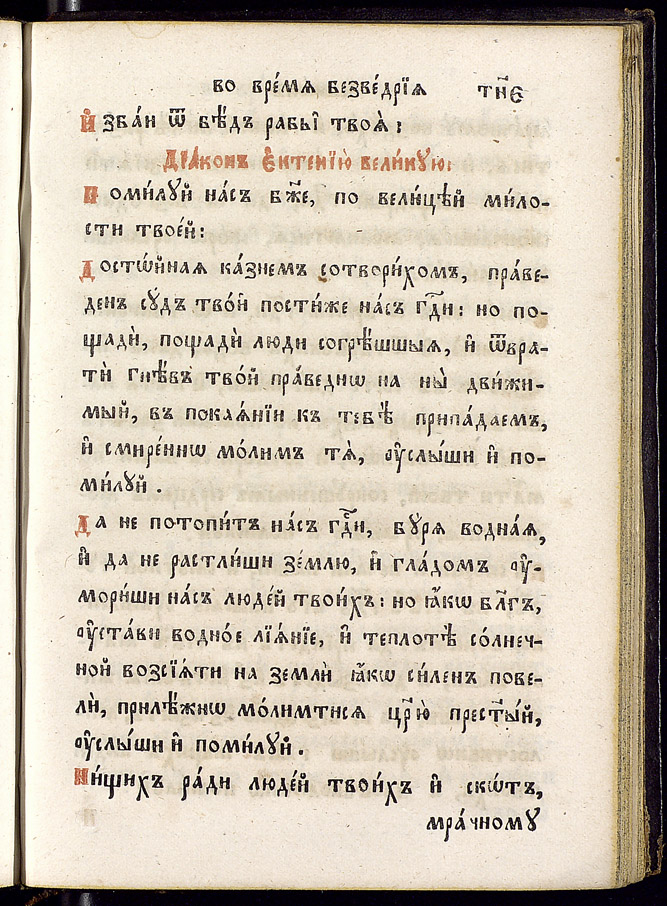 во вре́мѧ безве́дрїѧ тн҃є
И҆збави ѿ бѣ́дъ рабы̀ твоѧ̀:
Дїаконъ є҆ктенїю̀ вели́кую:
Поми́лꙋй на́съ бж҃е, по вели́цѣй ми́ло-
сти твое́й:
Досто́йнаѧ ка́знемъ сотвори́хомъ, пра́ве-
денъ сꙋ́дъ тво́й пости́же на́съ гдⷭ҇и: но по-
щадѝ, пощадѝ лю́ди согрѣ́шшыѧ, и҆ ѿвра-
тѝ гнѣ́въ тво́й пра́веднѡ на ны̀ дви́жи-
мый, въ покаѧ́нїи къ тебѣ̀ припа́даемъ,
и҆ смире́ннѡ мо́лимъ тѧ̀, ᲂу҆слы́ши и҆ по-
ми́лꙋй.
Да не потопи́тъ на́съ гдⷭ҇и, бꙋ́рѧ водна́ѧ,
и҆ да не растли́ши зе́млю, и҆ гла́домъ ᲂу҆-
мори́ши на́съ люде́й твои́хъ: но ꙗ҆́кѡ бл҃гъ,
ᲂу҆ста́ви водно́е лїѧ́нїе, и҆ теплотѣ̀ со́лнеч-
ной возсїѧ́ти на землѝ ꙗ҆́кѡ си́ленъ пове-
лѝ, прилѣ́жнѡ мо́лимтисѧ цр҃ю̀ престы́й,
ᲂу҆слы́ши и҆ поми́лꙋй.
Ни́щихъ ра́ди люде́й твои́хъ и҆ скѡ́тъ,
мра́чномꙋ